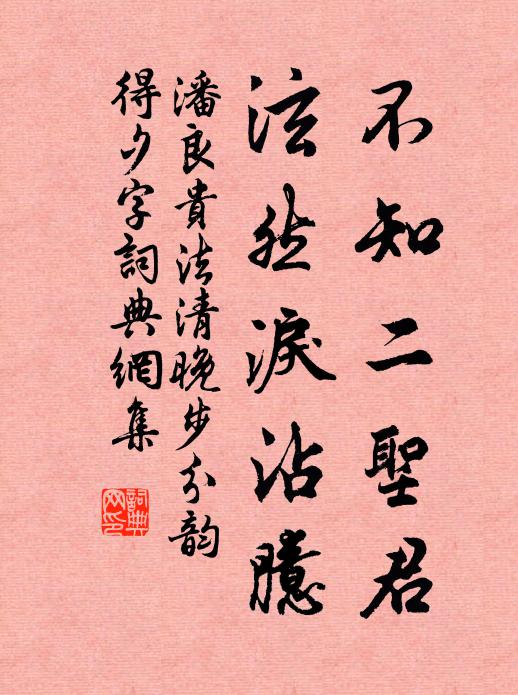 不知二聖君
泫然淚沾臆
潘良貴法清晚步分韵
得夕字詞典網集
詞典网印